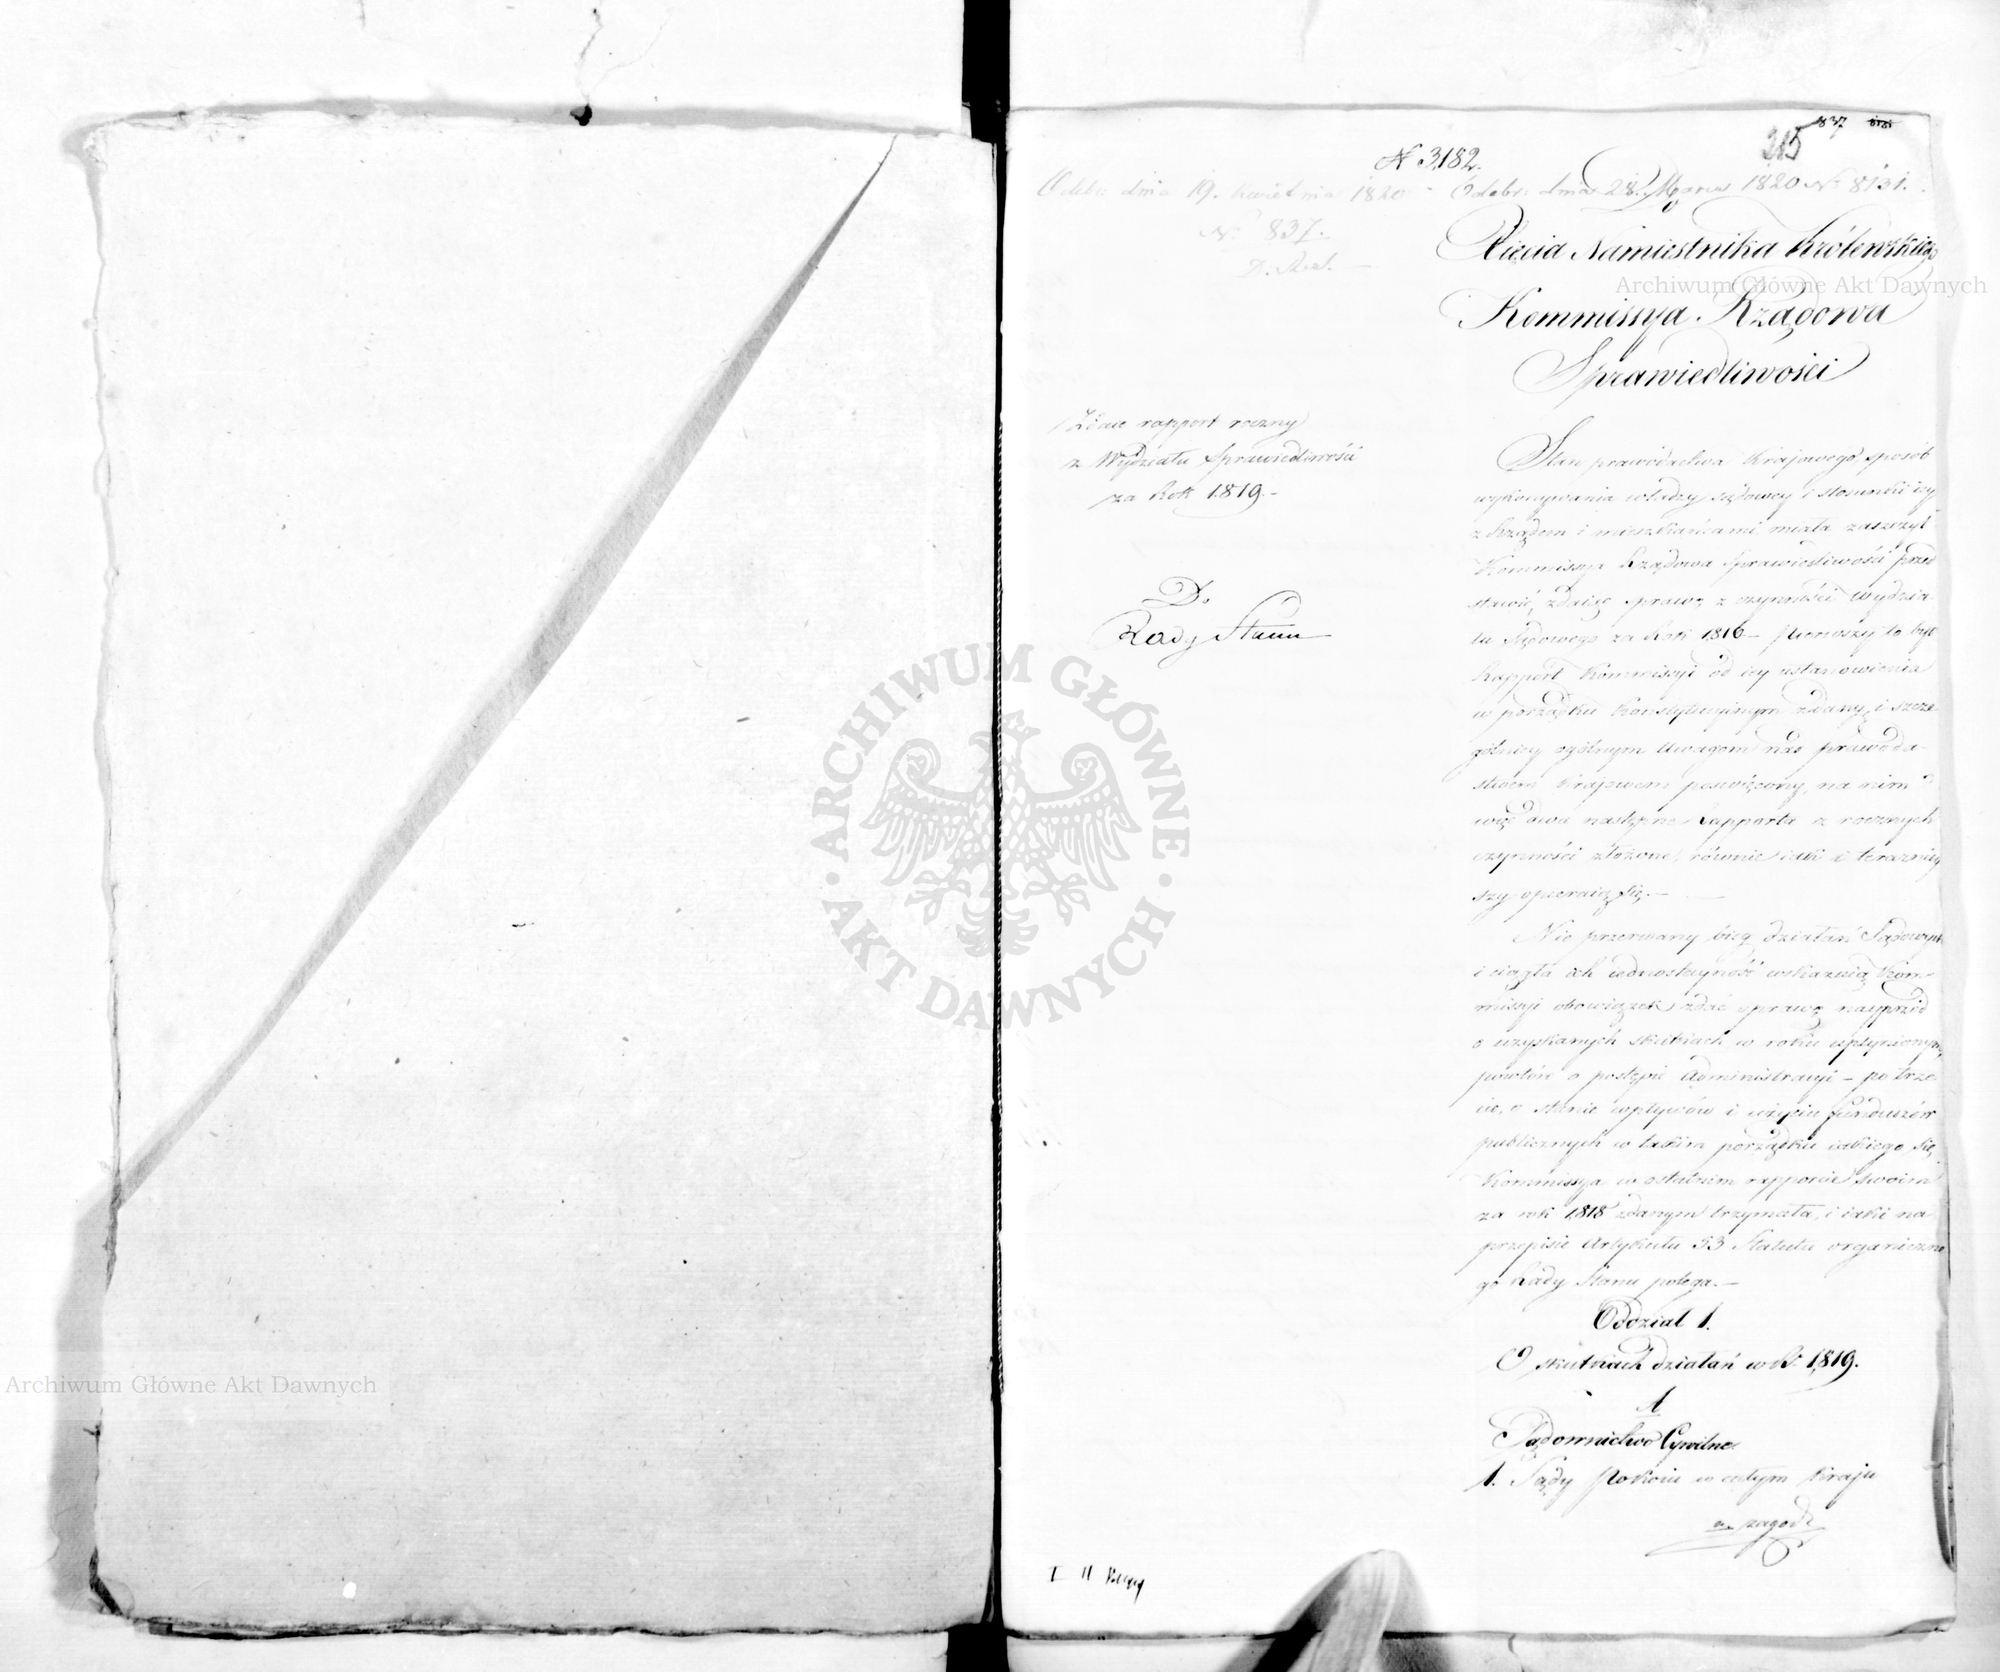 315 837
N 3182.
Odebr: dnia 19. kwietnia 1820 - Odebr: dnia 28. Marca 1820 Nr 8131.
Nr 837.
Xięcia Namiestnika Królewskiego
Kommissya Rządowa
Sprawiedliwości
Zdaie rapport roczny
z Wydziału Sprawiedliwości
za Rok 1819.-
D.
Rady Stanu
Stan prawodactwa Krajowego sposób
wykonywania władzy sądowey i stosunki iey
z Rządem i mieszkańcami miała zaszczyt
Kommissya Rządowa Sprawiedliwości przed
stawić, zdaiąc sprawę z czynności Wydzia-
łu Sądowego za Rok 1816 - Pierwszy to był
Rapport Kommissyi od iey ustanowienia
w porządku Konstytucyinym zdany, i szcze-
gólniey ogólnym uwagom nad prawoda-
stwem Krajowem poswięcony, na nim
więc dwa następne Rapporta z rocznych
czynności złożone, równie iak i teraźniey
szy opieraią się.-
Nie przerwany bieg działań Sądowych
i ciągła ich iednostayność wskazuią Kom-
missyi obowiązek zdać sprawę nayprzód
o uzyskanych skutkach w roku upłynionym,
powtóre o postępie Administracyi - po trze-
cie, o stanie wpływów i użyciu funduszów
publicznych w takim porządku iakiego się
Kommissya w ostatnim rapporcie swoim
za rok 1818 zdanym trzymała, i iaki na
przepisie Artykułu 53 Statutu organiczne
go Rady Stanu polega.-
Oddział 1.
O skutkach działań w R: 1819.
A
Sądownictwo Cywilne
1. Sądy Pokoiu w całym Kraju
zagodz
I II
Archiwum Główne Akt Dawnych
Archiwum Główne Akt Dawnych
ARCHIWUM GŁÓWNE
AKT DAWNYCH